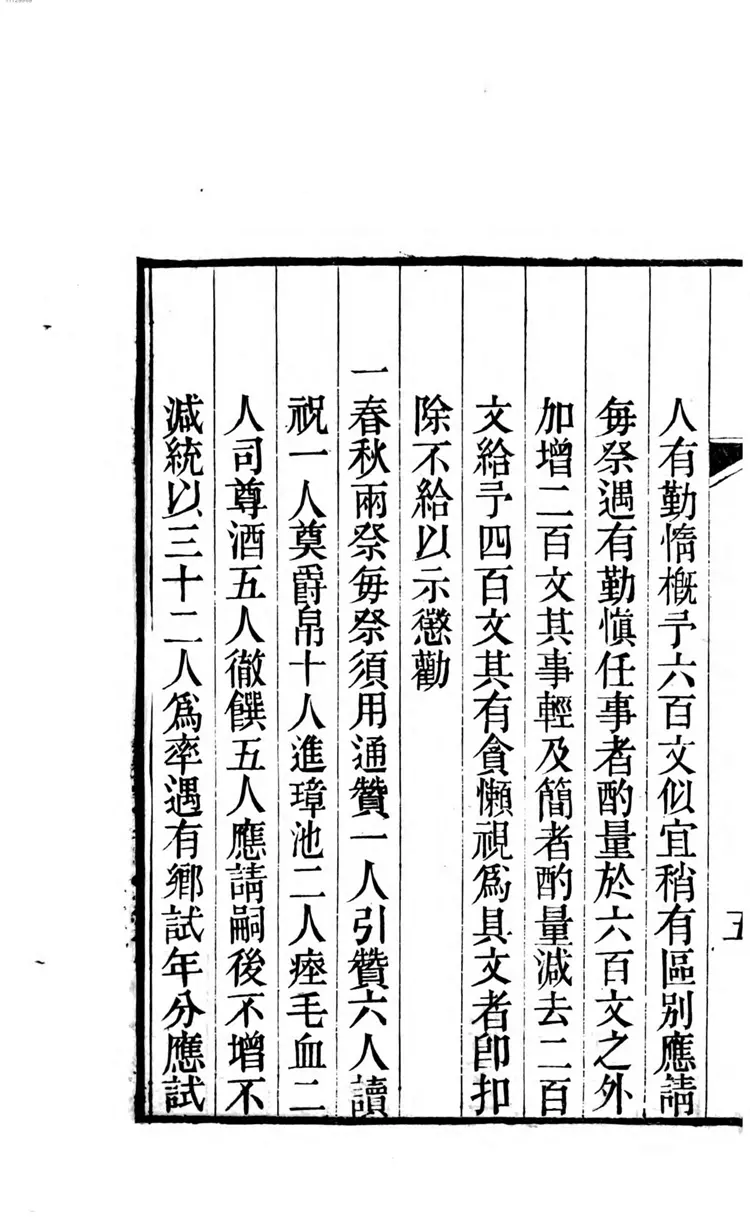 人有勤惰槪予六百文似宜稍有區别應請
每祭遇有勤愼任事者酌量於六百文之外
加增二百文其事輕及簡者酌量減去二百
文給予四百文其有貪懶視爲具文者卽扣
除不給以示懲勸
一春秋兩祭每祭須用通贊一人引贊六人讀
祝一人奠爵帛十人進璋池二人瘞毛血二
人司尊酒五人徹饌五人應請嗣後不增不
減統以三十二人爲率遇有鄉試年分應試